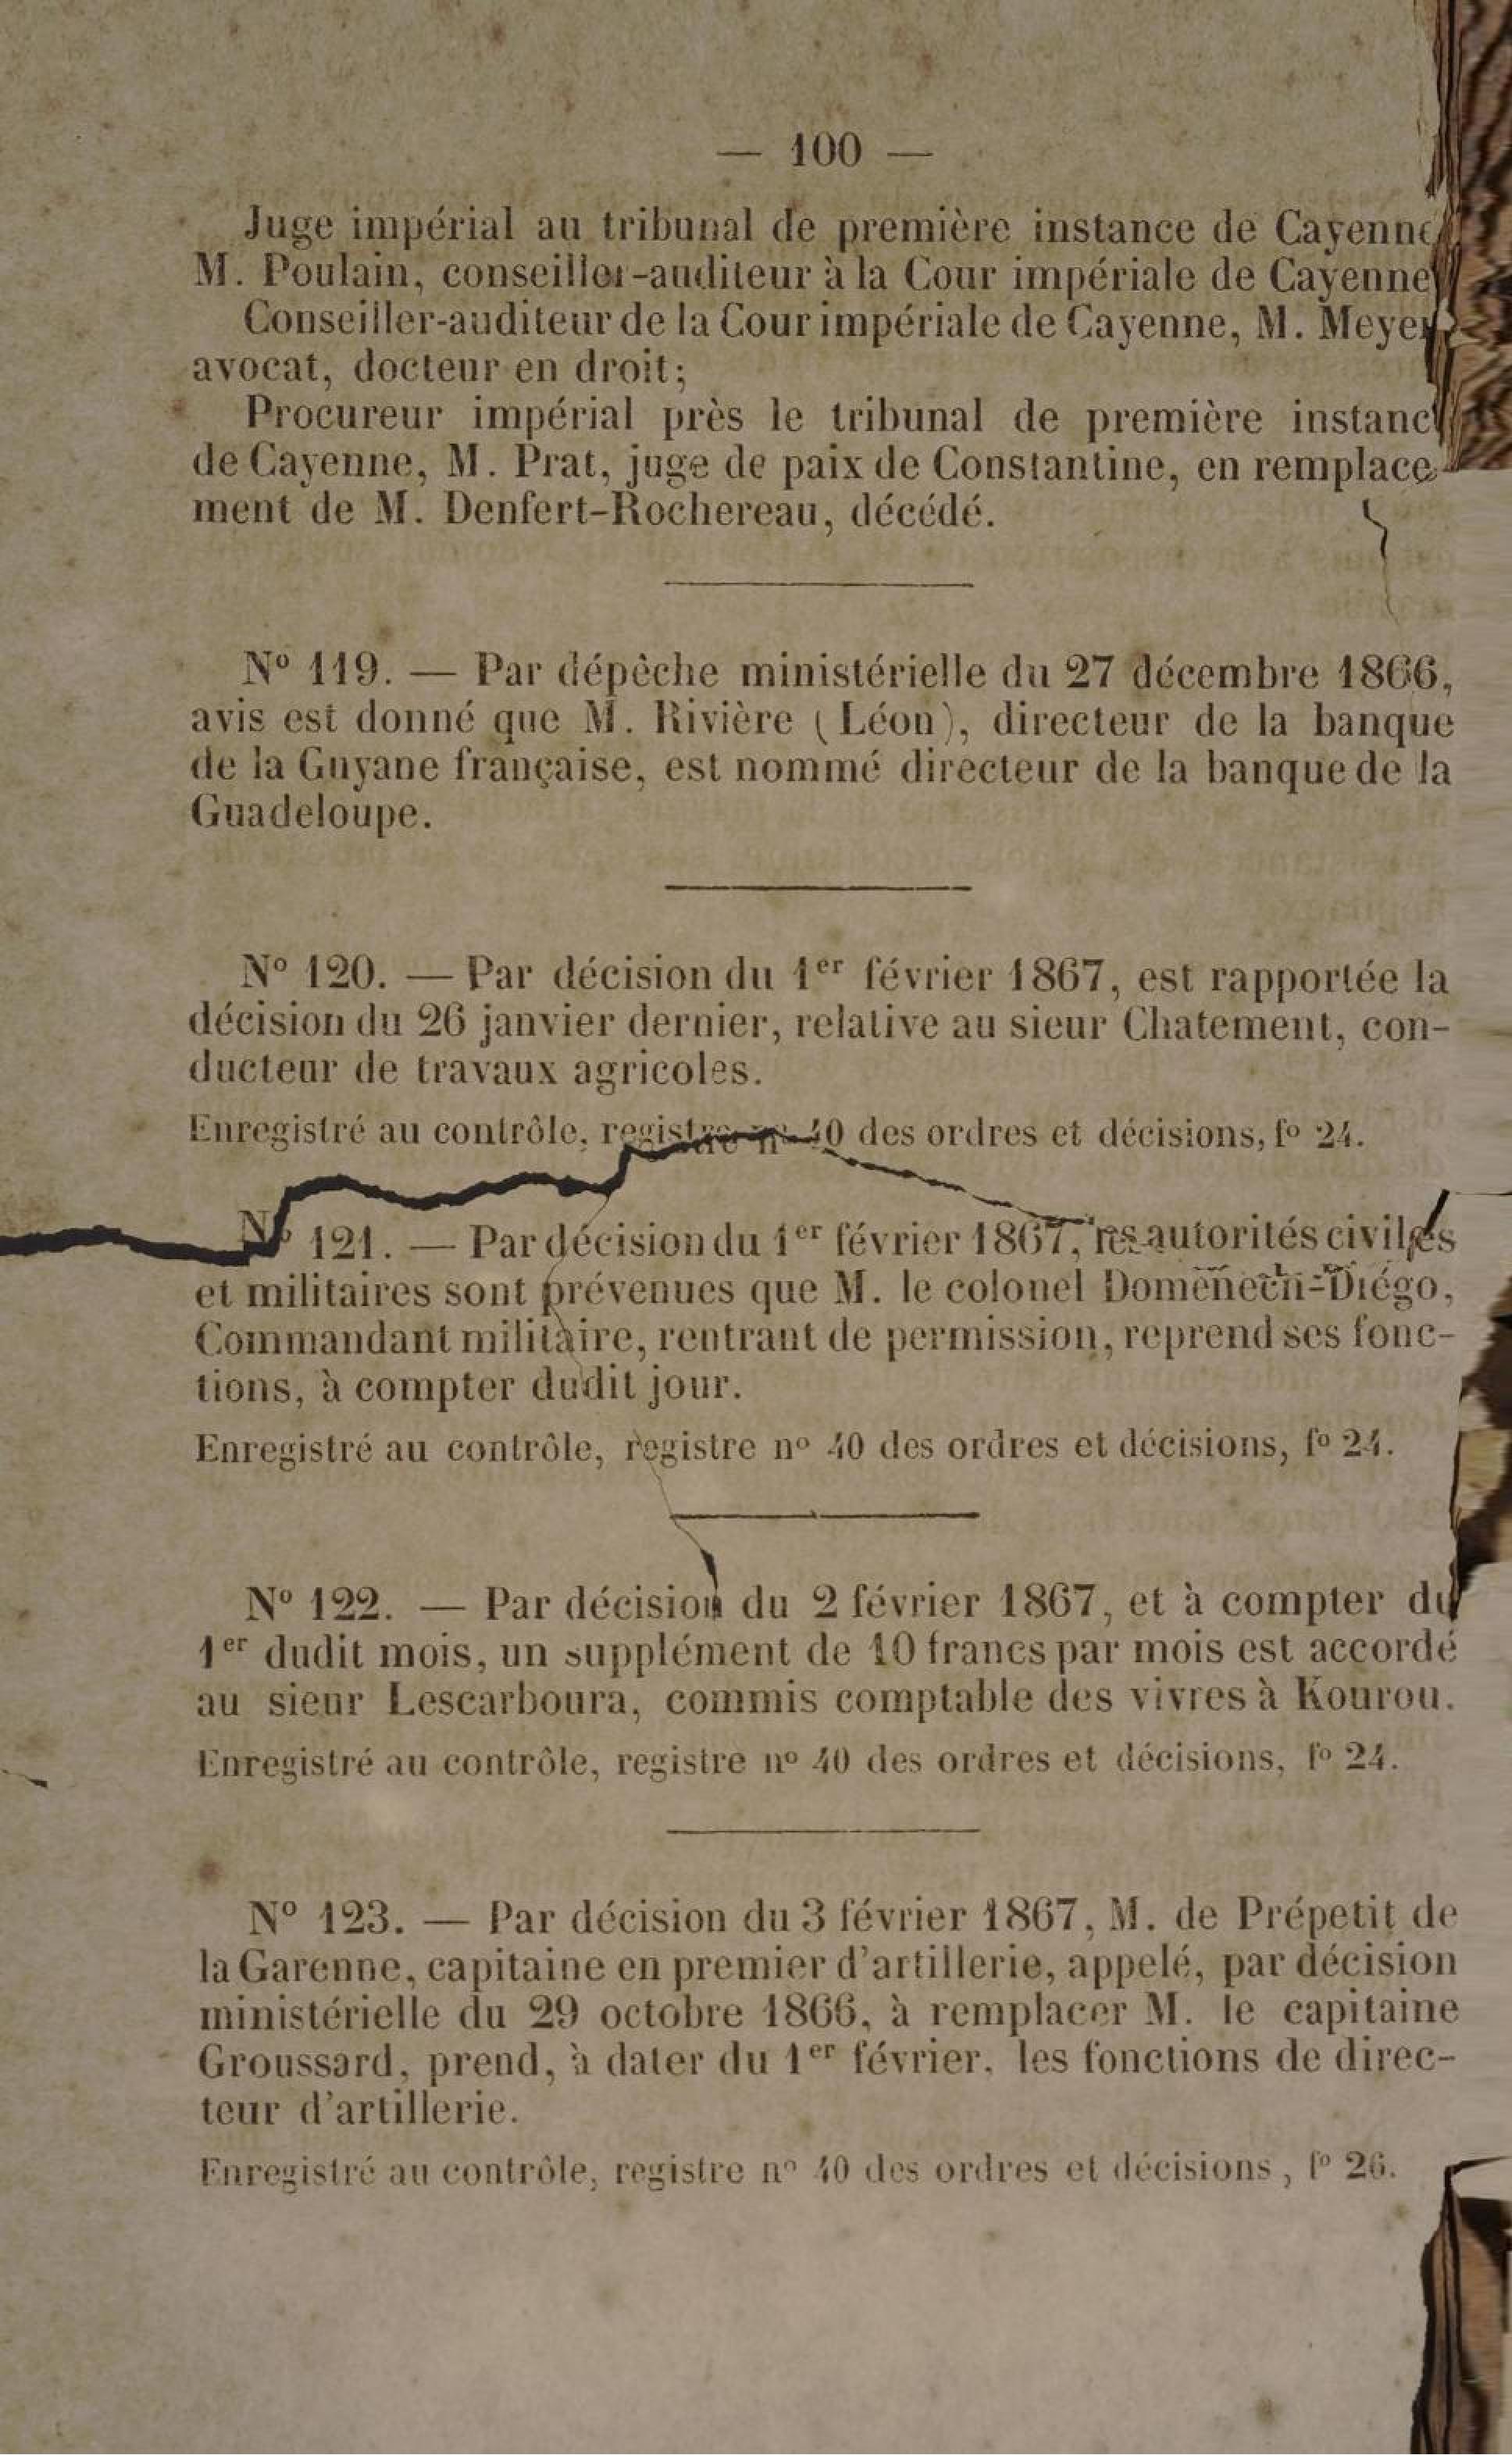 — 100 —
Juge impérial au tribunal de première instance de Cayenne
M. Poulain, conseiller-auditeur à la Cour impériale de Cayenne
Conseiller-auditeur de la Cour impériale de Cayenne, M. Meyer
avocat, docteur en droit;
Procureur impérial près le tribunal de première instanc
de Cayenne, M. Prat, juge de paix de Constantine, en remplace
ment de M. Denfert-Rochereau, décédé.
N° 119. — Par dépêche ministérielle du 27 décembre 1866,
avis est donné que M. Rivière (Léon), directeur de la banque
de la Guyane française, est nommé directeur de la banque de la
Guadeloupe.
N° 120. — Par décision du 1er février 1867, est rapportée la
décision du 26 janvier dernier, relative au sieur Chatement, con-
ducteur de travaux agricoles.
Enregistré au contrôle, registre n° 40 des ordres et décisions, f° 24.
N° 121. — Par décision du 1er février 1867, les autorités civiles
et militaires sont prévenues que M. le colonel Domenech-Diégo,
Commandant militaire, rentrant de permission, reprend ses fonc-
tions, à compter dudit jour.
Enregistré au contrôle, registre n° 40 des ordres et décisions, f° 24.
N° 122. — Par décision du 2 février 1867, et à compter du
1er dudit mois, un supplément de 10 francs par mois est accordé
au sieur Lescarboura, commis comptable des vivres à Kourou.
Enregistré au contrôle, registre n° 40 des ordres et décisions, f° 24.
N° 123. — Par décision du 3 février 1867, M. de Prépetit de
la Garenne, capitaine en premier d'artillerie, appelé, par décision
ministérielle du 29 octobre 1866, à remplacer M. le capitaine
Groussard, prend, à dater du 1er février, les fonctions de direc-
teur d'artillerie.
Enregistré au contrôle, registre n° 40 des ordres et décisions, f° 26.